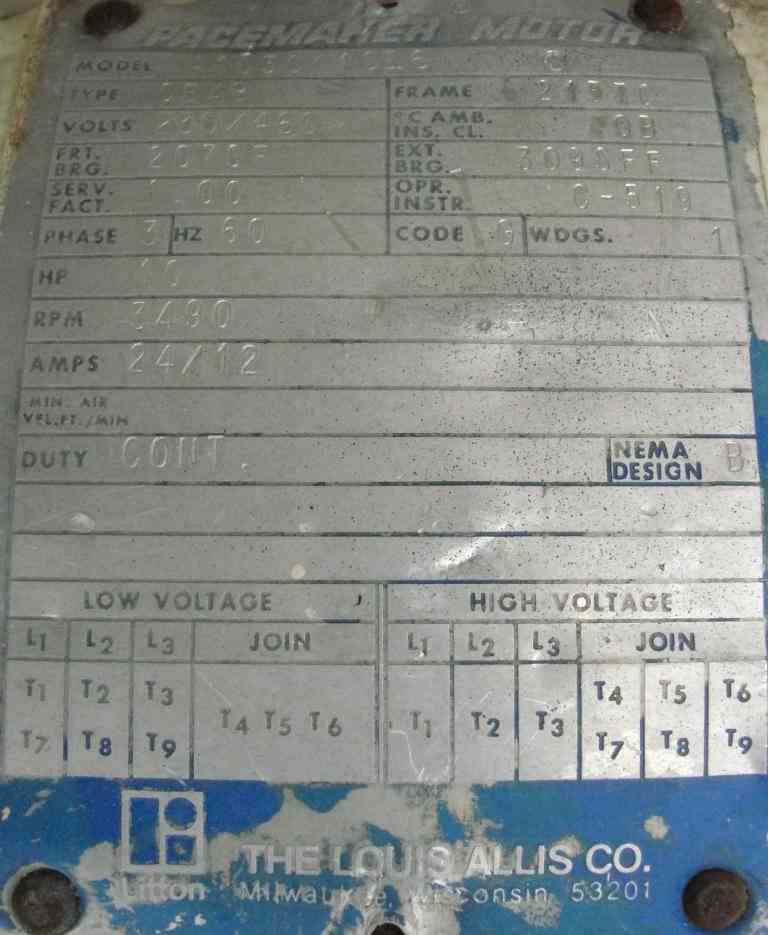 PACEMAKER MOTOR
MODEL
TYPE FRAME
VOLTS 230/460 °C AMB. INS. CL.
FRT. BRG. 207CF EXT. BRG. 309CFF
SERV. FACT. 1.00 OPR. INSTR. C-519
PHASE 3 HZ 60 CODE G WDGS. 1
HP 10
RPM 3490
AMPS 24/12
MIN. AIR VEL.FT./MIN
DUTY CONT. NEMA DESIGN B
LOW VOLTAGE HIGH VOLTAGE
L1 L2 L3 JOIN L1 L2 L3 JOIN
T1 T2 T3 T4 T5 T6 T1 T2 T3 T4 T5 T6
T7 T8 T9 T7 T8 T9
THE LOUIS ALLIS CO.
Litton Milwaukee, Wisconsin 53201